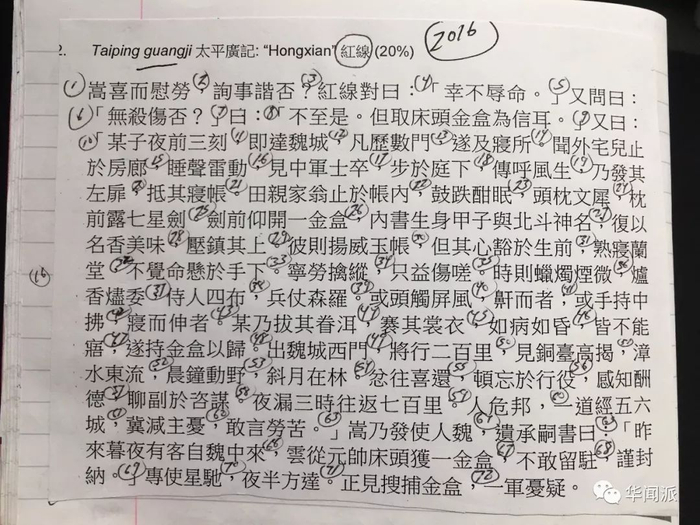 2. Taiping guangji 太平廣記: "Hongxian" 紅線 (20%) 2016
①嵩喜而慰勞②詢事諧否?③紅線對曰:④「幸不辱命。」⑤又問曰:
⑥「無殺傷否?」⑦曰:⑧「不至是。但取床頭金盒為信耳。」⑨又曰:
⑩「某子夜前三刻,⑪即達魏城,⑫凡歷數門,⑬遂及寢所。⑭聞外宅兒止
於房廊,⑮睡聲雷動。⑯見中軍士卒,⑰步於庭下,⑱傳呼風生。⑲乃發其
左扉,⑳抵其寢帳。㉑田親家翁止於帳內,㉒鼓跌酣眠,㉓頭枕文犀,㉔枕
前露七星劍。㉕劍前仰開一金盒,㉖內書生身甲子與北斗神名。㉗復以
名香美味,㉘壓鎮其上。㉙彼則揚威玉帳,㉚但其心豁於生前,㉛熟寢蘭
堂,㉜不覺命懸於手下。㉝寧勞擒縱,㉞只益傷嗟。㉟時則蠟燭煙微,㊱爐
香燼委,㊲侍人四布,㊳兵仗森羅。㊴或頭觸屏風,㊵鼾而者;㊶或手持巾
拂,㊷寢而伸者。㊸某乃拔其簪珥,㊹褰其裳衣,㊺如病如昏,㊻皆不能
寤,㊼遂持金盒以歸。㊽出魏城西門,㊾將行二百里,㊿見銅臺高揭,漳
水東流,晨鐘動野,斜月在林。忿往喜還,頓忘於行役,感知酬
德,聊副於咨謀。夜漏三時往返七百里。人危邦,一道經五六
城,冀減主憂,敢言勞苦。」嵩乃發使人魏,遺承嗣書曰:「昨
來暮夜有客自魏中來,雲從元帥床頭獲一金盒,不敢留駐,謹封
納。」專使星馳,夜半方達。正見搜捕金盒,一軍憂疑。
16
华闻派